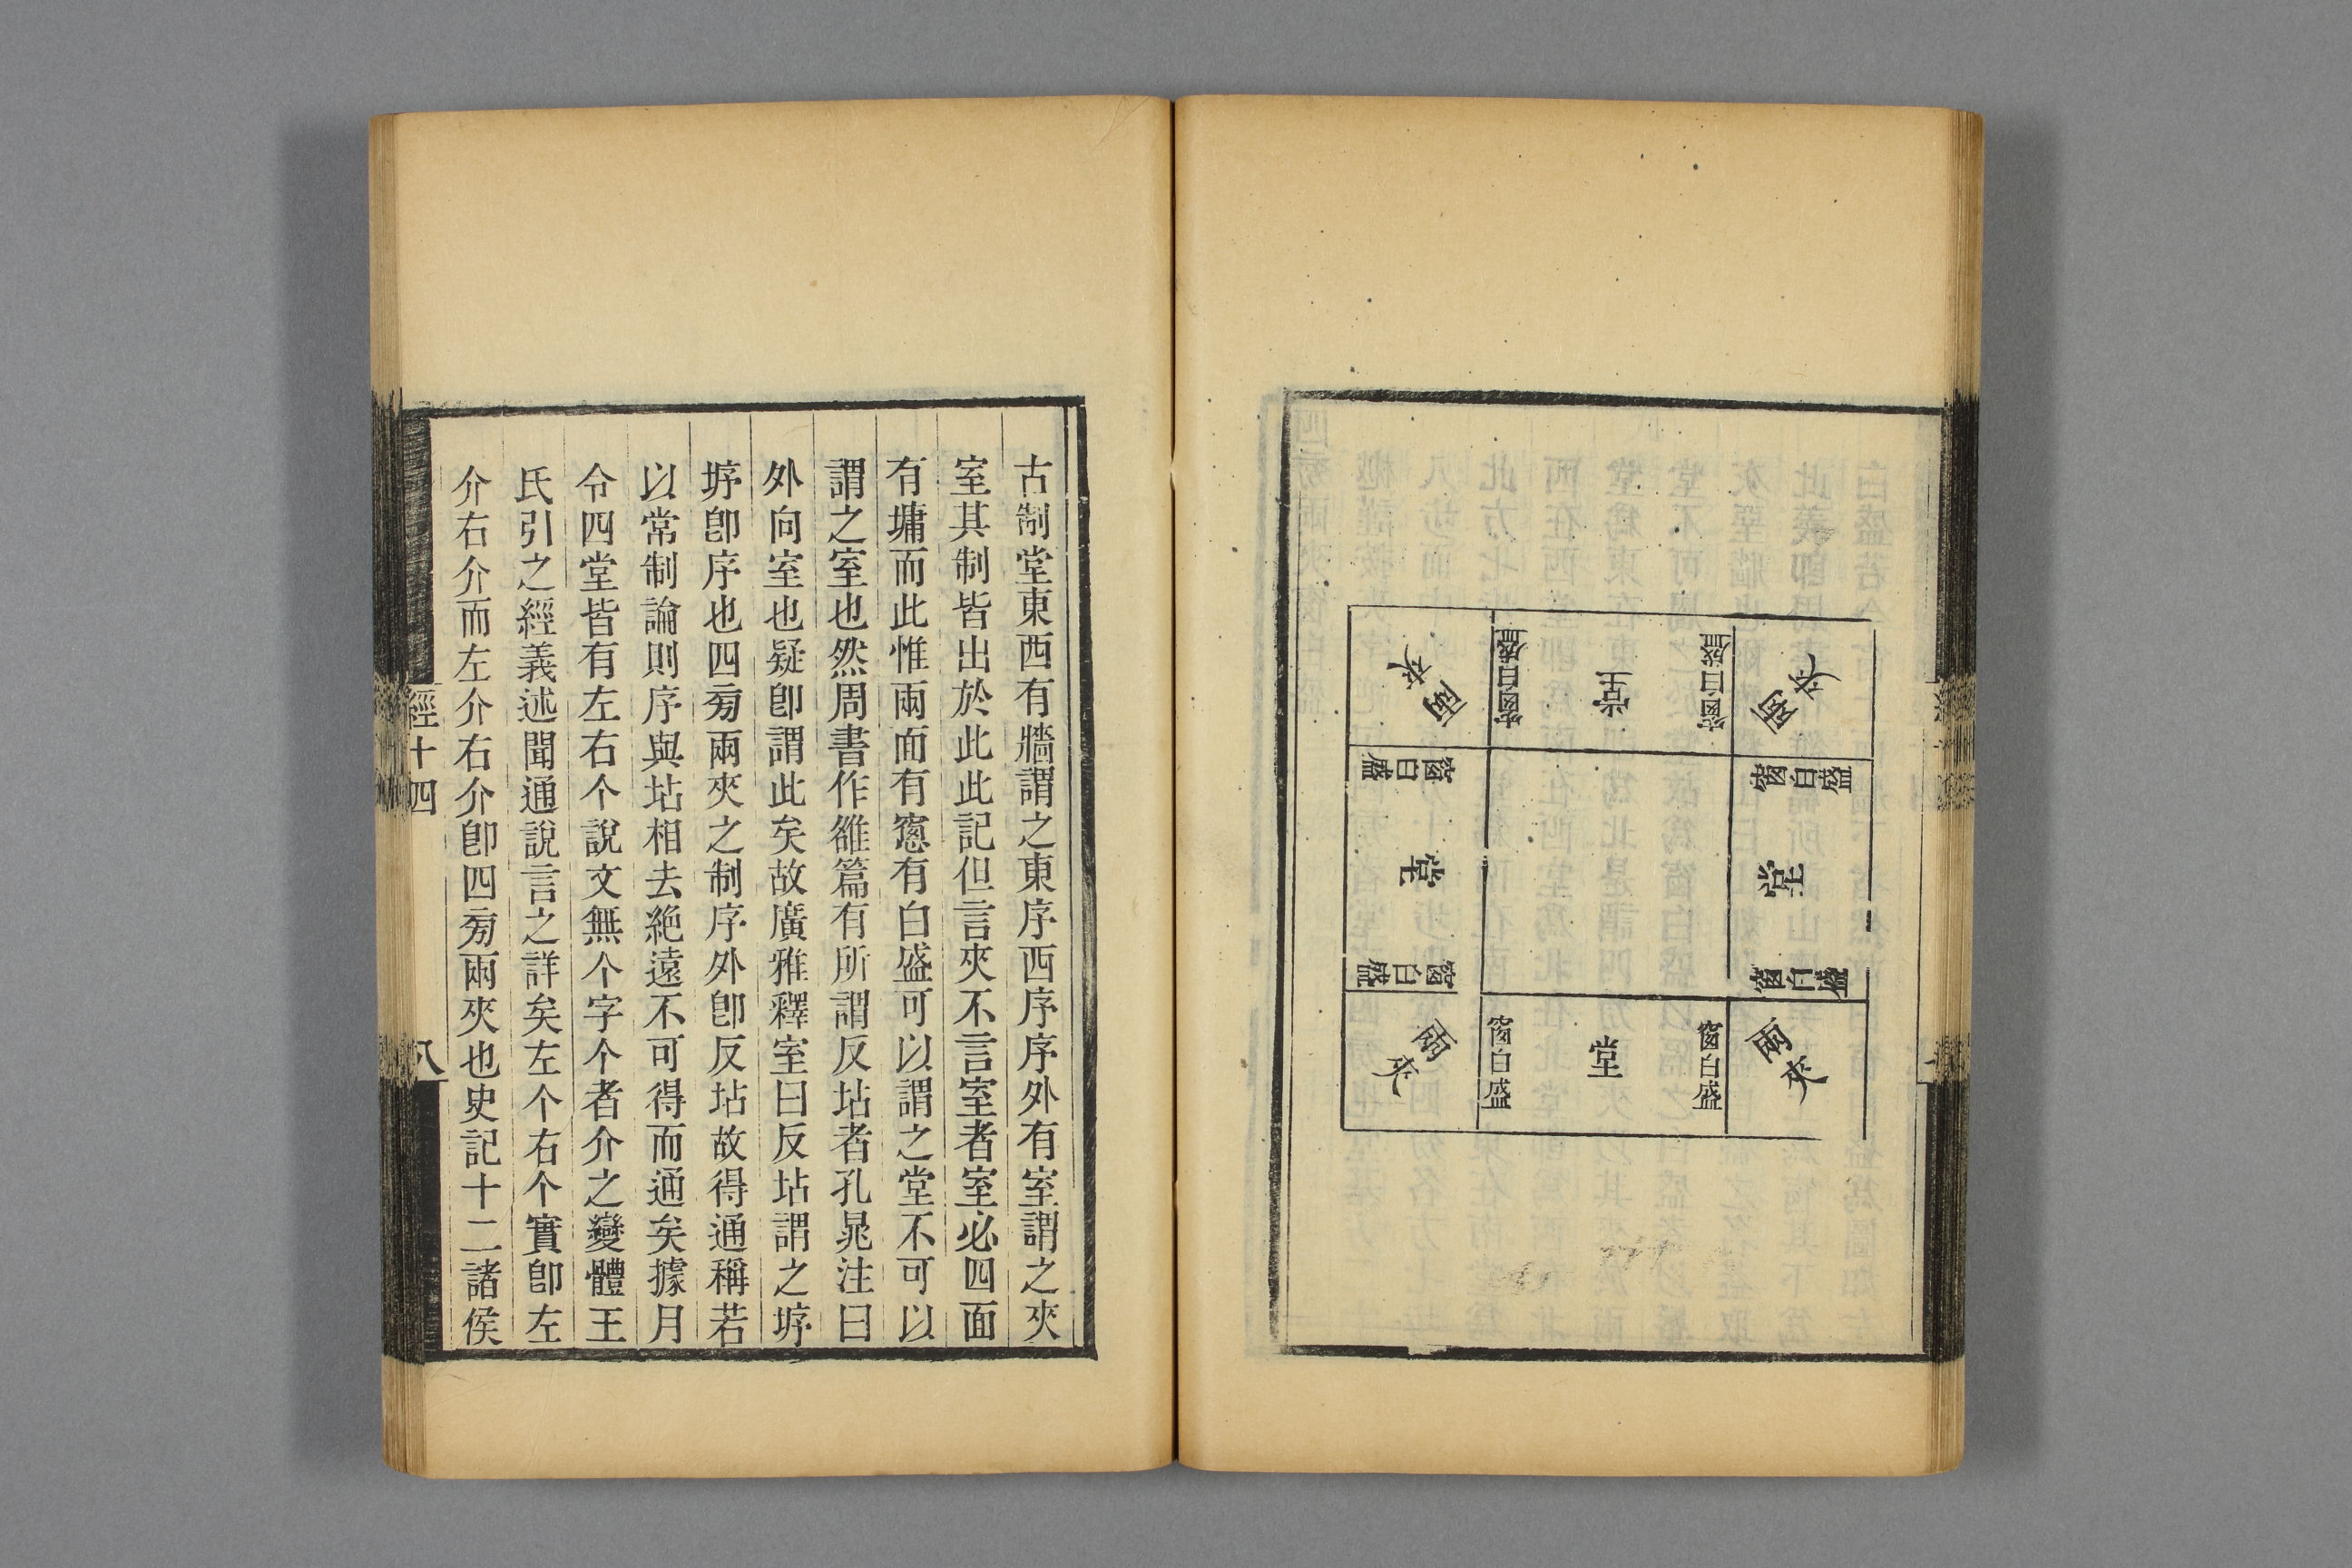 兩夾
窗白盛
堂
窗白盛
兩夾
窗白盛
堂
窗白盛
窗白盛
堂
窗白盛
兩夾
窗白盛
堂
窗白盛
兩夾
古制堂東西有牆謂之東序西序序外有室謂之夾
室其制皆出於此此記但言夾不言室者室必四面
有墉而此惟兩面有窻有白盛可以謂之堂不可以
謂之室也然周書作雒篇有所謂反坫者孔晁注曰
外向室也疑卽謂此矣故廣雅釋室曰反坫謂之㡿
㡿卽序也四㫄兩夾之制序外卽反坫故得通稱若
以常制論則序與坫相去絶遠不可得而通矣據月
令四堂皆有左右个說文無个字个者介之變體王
氏引之經義述聞通說言之詳矣左个右个實卽左
介右介而左介右介卽四㫄兩夾也史記十二諸侯
經十四
八